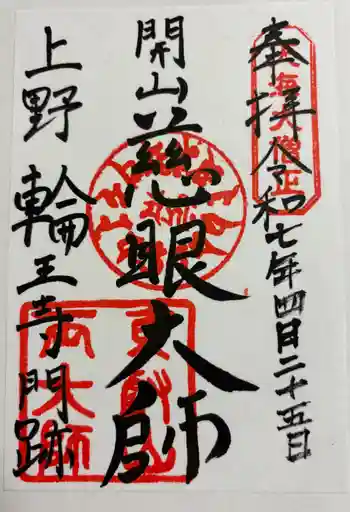 奉拝
令和七年四月二十五日
開山慈眼大師
上野 輪王寺門跡